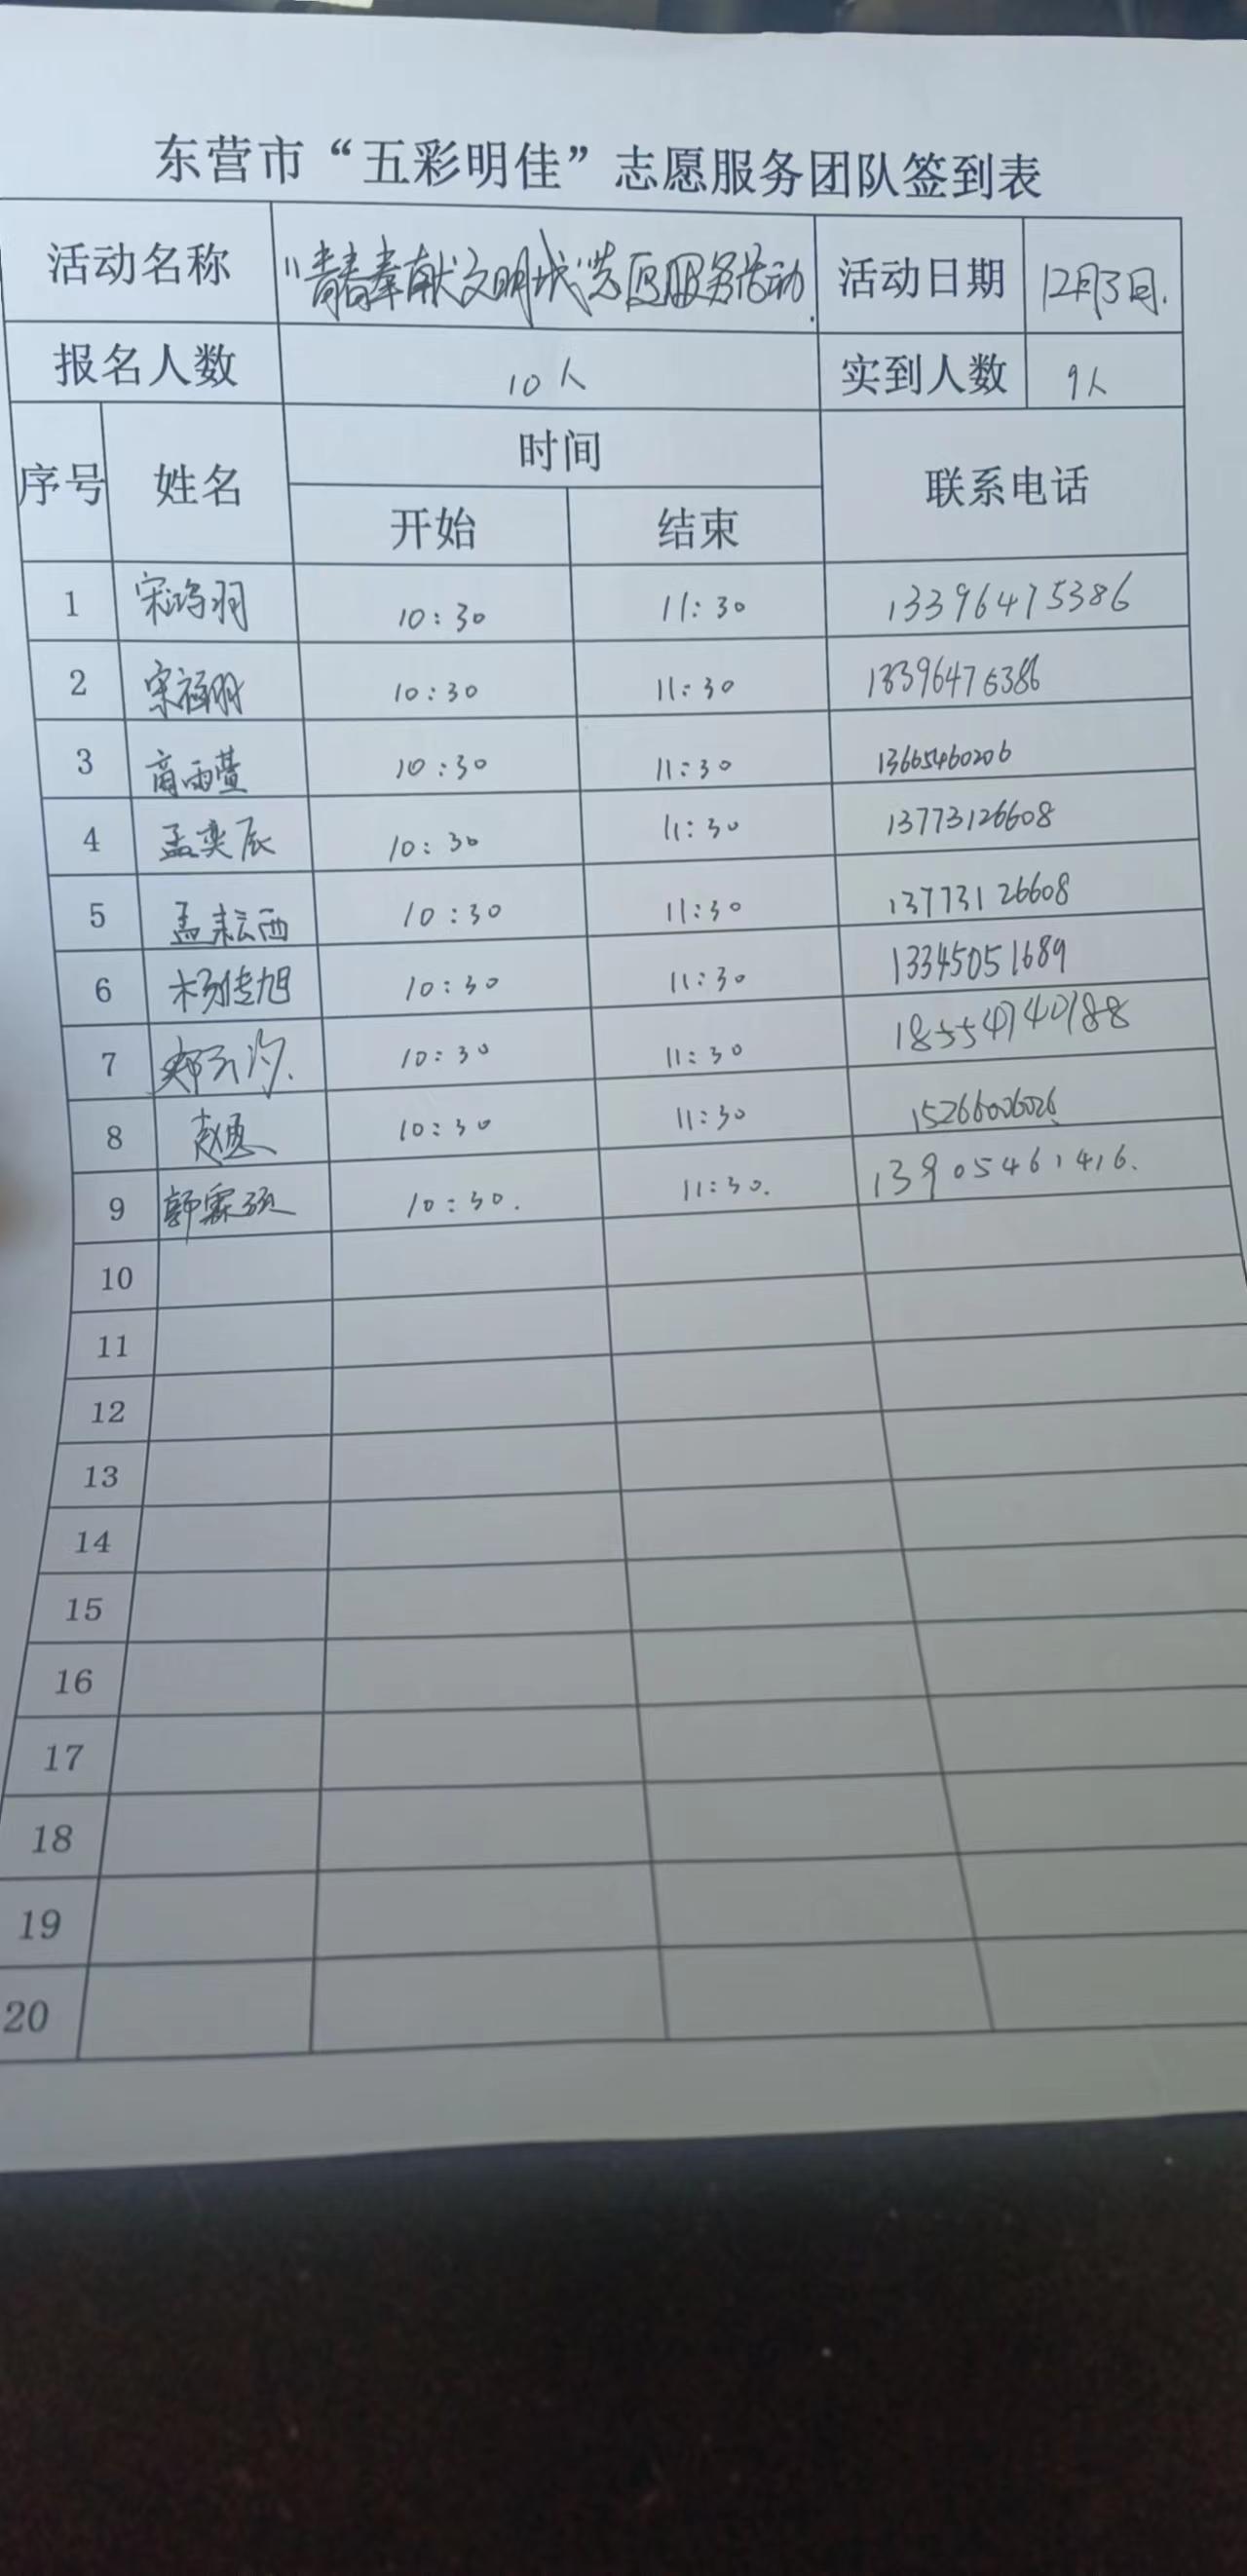 东营市“五彩明佳”志愿服务团队签到表
活动名称 “青春奉献文明城”志愿服务活动. 活动日期 12月3日.
报名人数 10人 实到人数 9人
序号 姓名 时间 联系电话
开始 结束
1 宋鸿羽 10:30 11:30 13396475386
2 宋福羽 10:30 11:30 13396475386
3 商雨萱 10:30 11:30 13665460206
4 孟奕辰 10:30 11:30 13773126608
5 孟耘西 10:30 11:30 13773126608
6 杨传旭 10:30 11:30 13345051689
7 郑云汐. 10:30 11:30 18554740188
8 赵恩 10:30 11:30 15266006026
9 郭霖硕 10:30. 11:30. 13905461416.
10
11
12
13
14
15
16
17
18
19
20